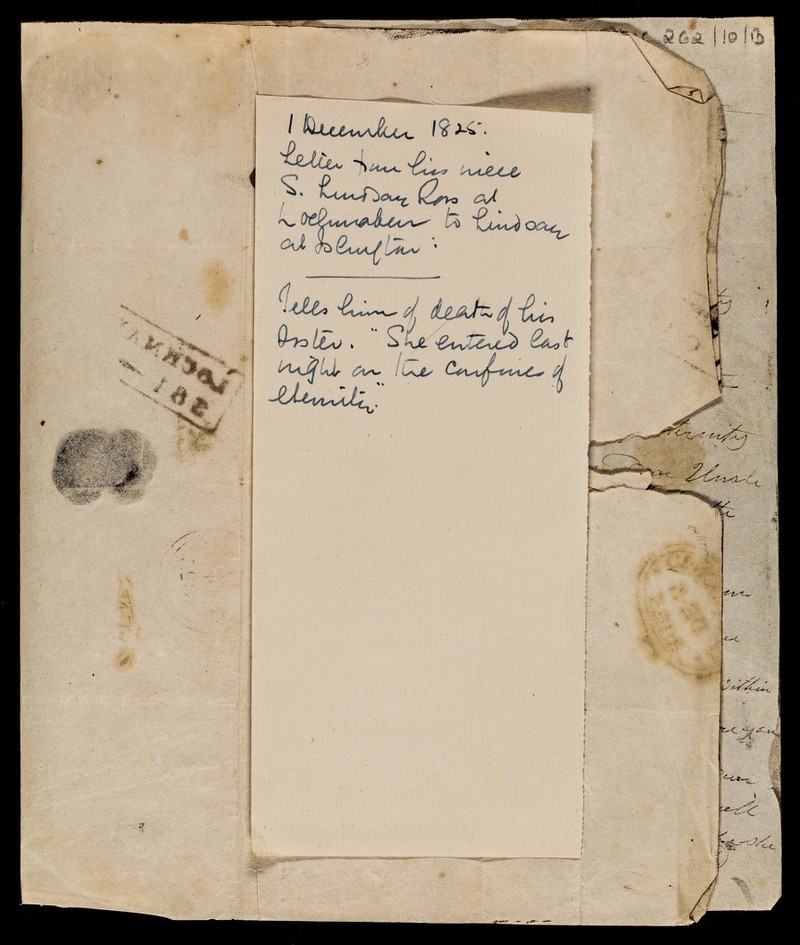 262/10/B
1 December 1825.
Letter from his niece
S. Lindsay Ross at
Lochmaben to Lindsay
at Islington:
Tells him of death of his
sister. "She entered last
night on the confines of
eternity."
LOCKMA
281
ternity
Uncle
the
within